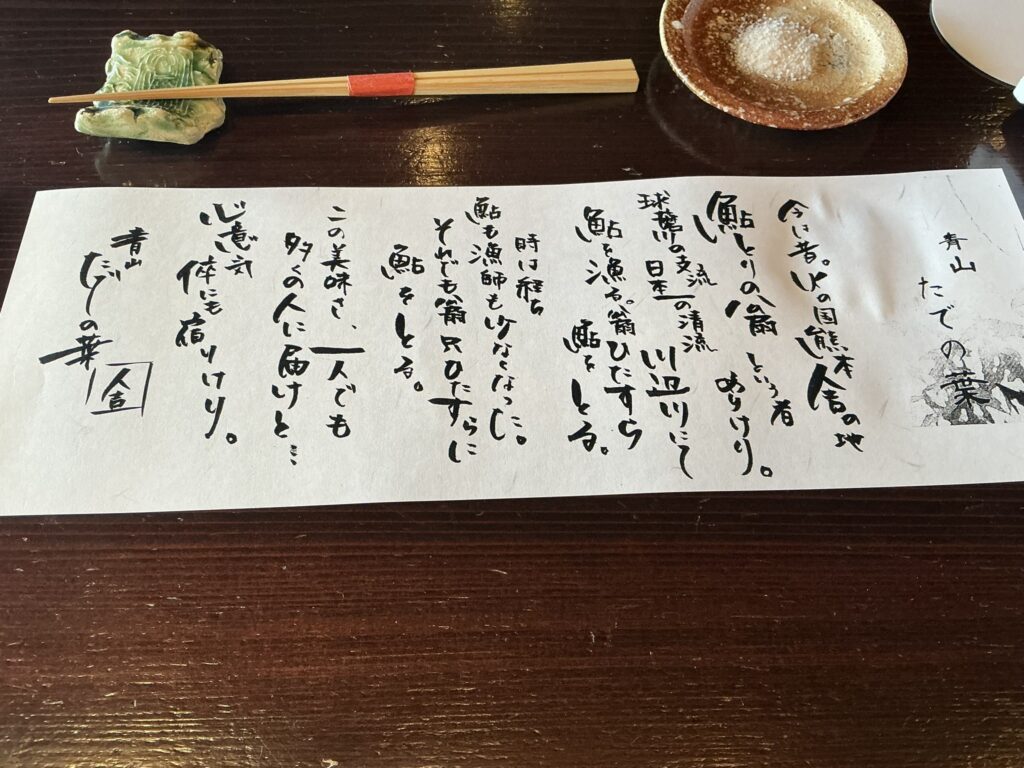 青山
たでの葉
今は昔。火の国熊本
人吉の地
鮎とりの翁という者
ありけり。
球磨川の支流
日本一の清流
川辺川にて
鮎を漁る。翁ひたすら
鮎をとる。
時は経ち
鮎も漁師も少なくなった。
それでも翁只ひたすらに
鮎をとる。
この美味さ、一人でも
多くの人に届けと…
心意気
体にも宿りけり。
青山
たでの葉
人吉